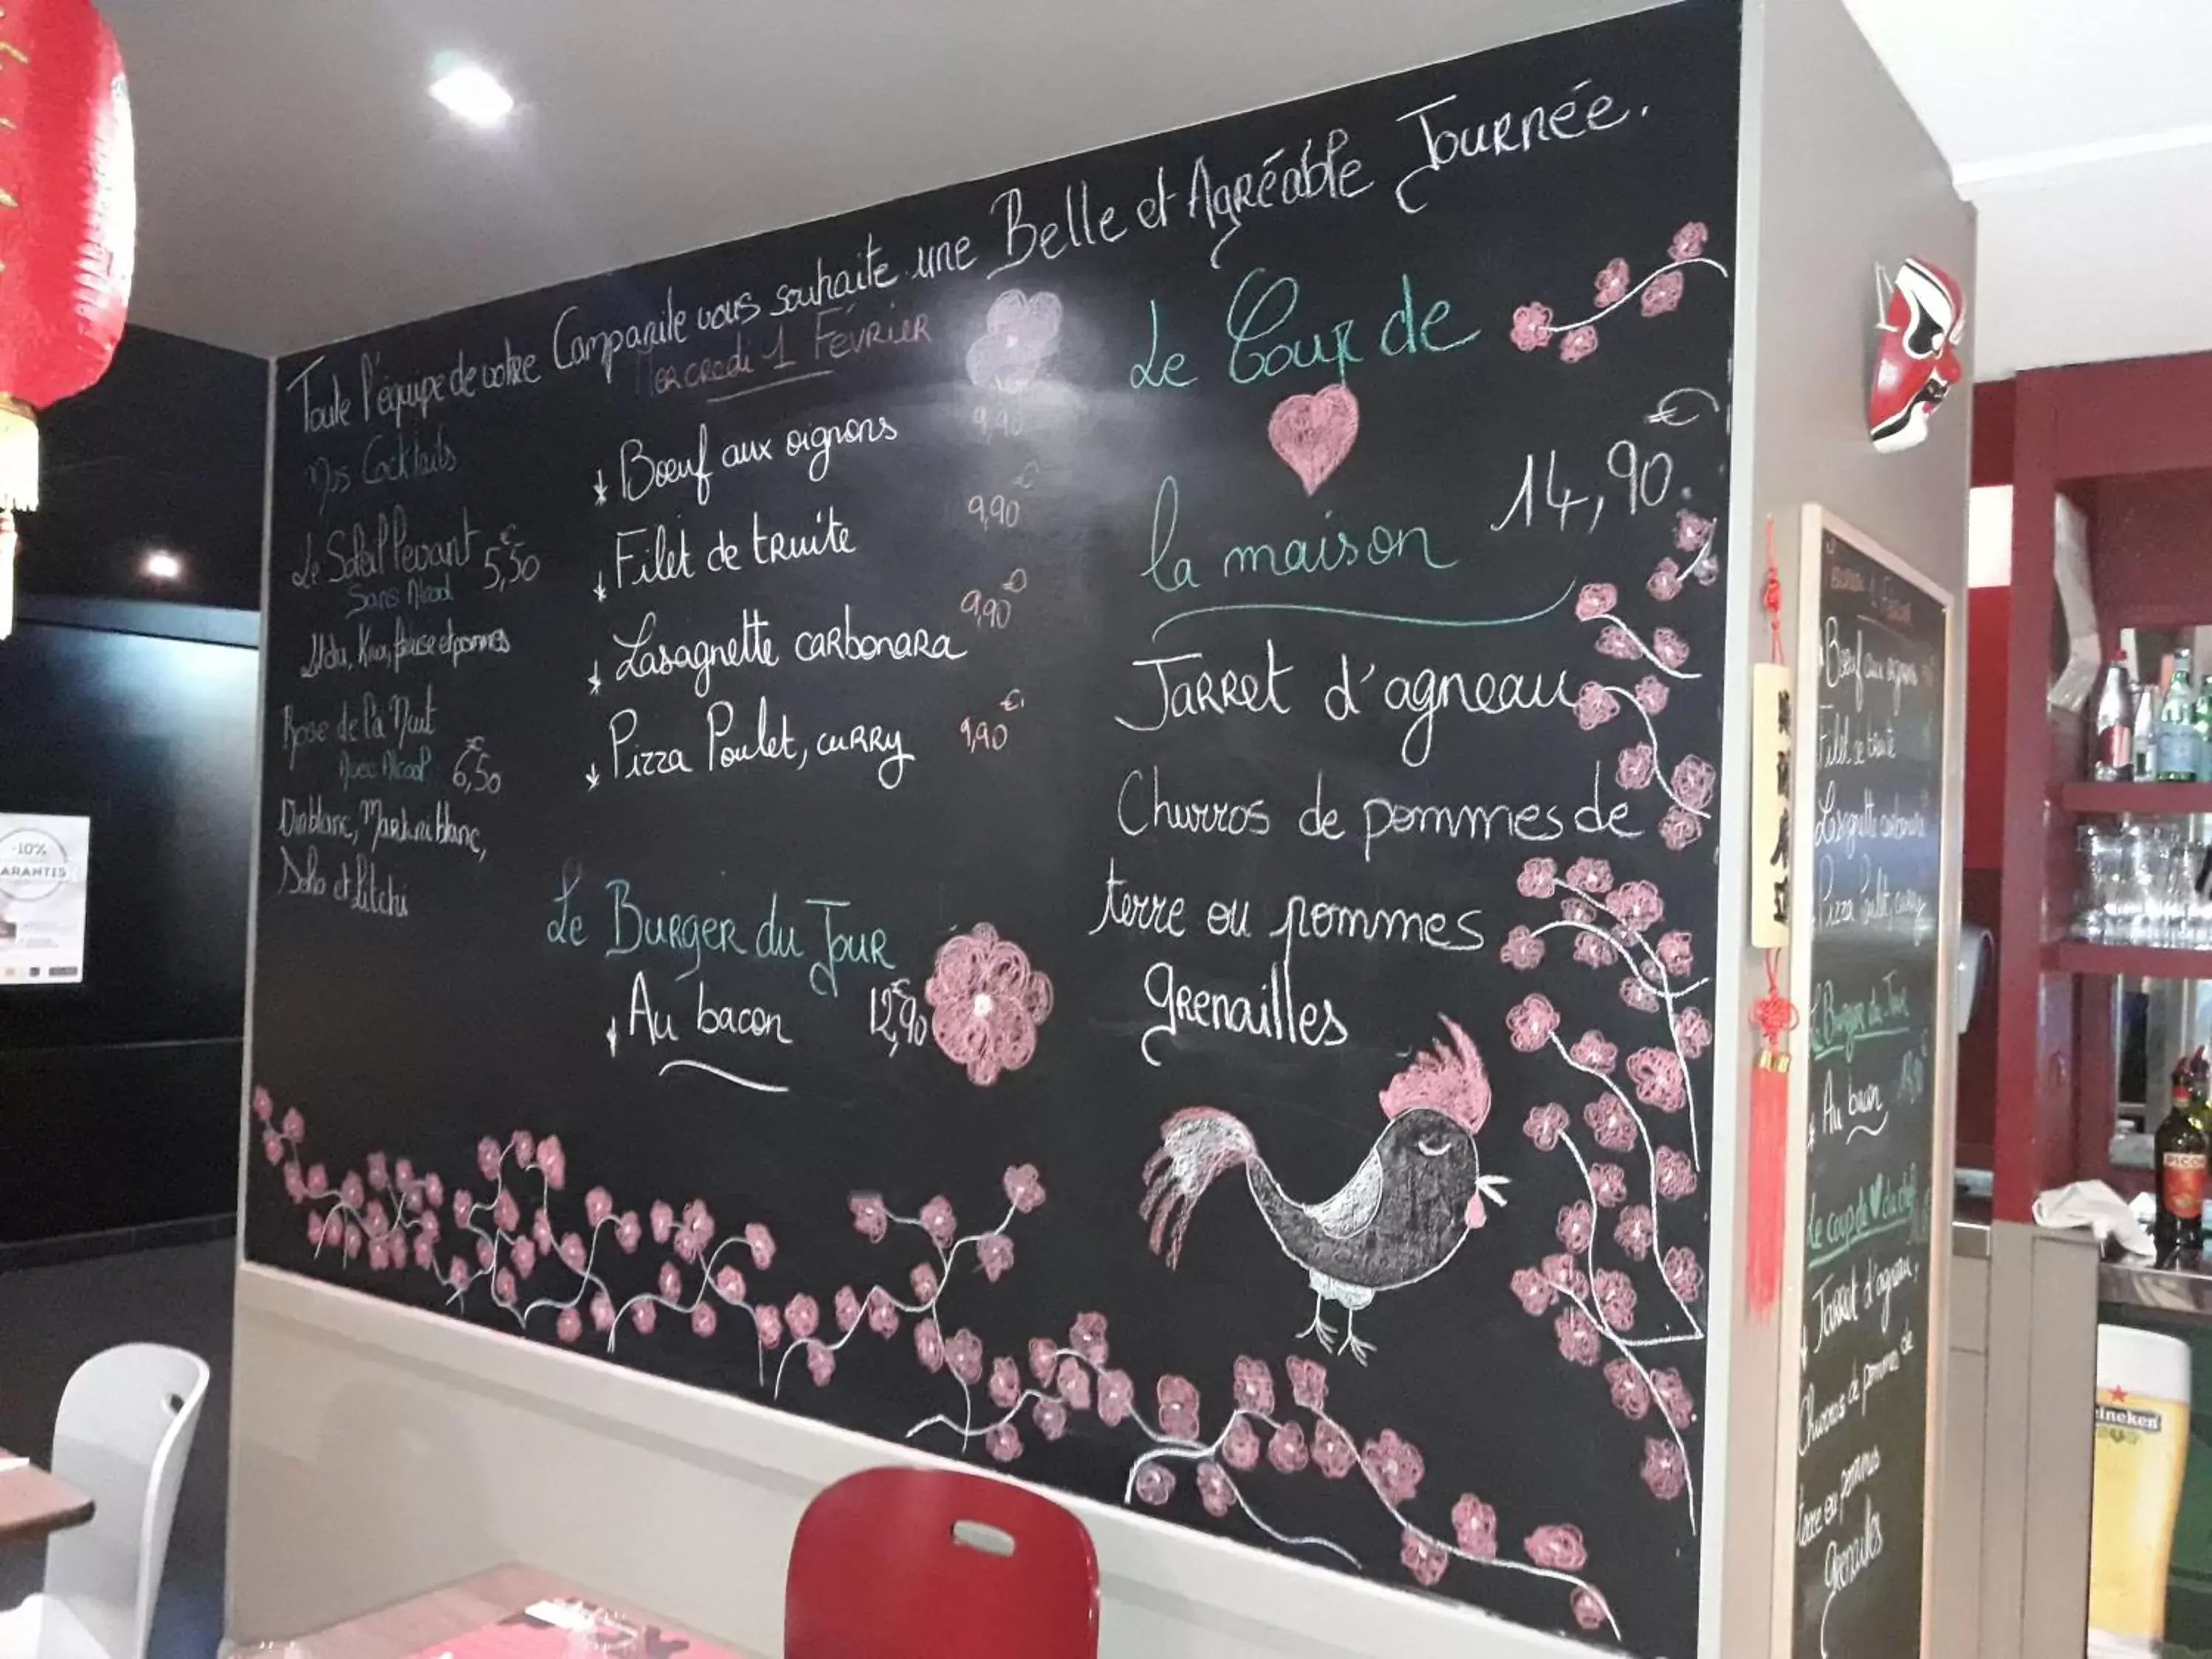 Toute l'équipe de votre Campanile vous souhaite une Belle et Agréable Journée.
Mercredi 1 Février
Nos Cocktails
Le Soleil Levant 5,50€
Sans Alcool
kiwi, fraise et pommes
Rose de la Nuit
Avec Alcool 6,50€
Martini blanc,
Soho et Litchi
Bœuf aux oignons 9,90
Filet de truite 9,90€
Lasagnette carbonara 9,90€
Pizza Poulet, curry 9,90€
Le Burger du Jour
Au bacon 12,90€
Le Coup de
la maison 14,90€
Jarret d'agneau
Churros de pommes de
terre ou pommes
grenailles
Bœuf aux oignons
Filet de truite
Lasagnette carbonara
Pizza Poulet, curry
Le Burger du Jour
Au bacon
Le coup de du chef
Jarret d'agneau,
Churros de pommes de
terre ou pommes
grenailles
-10%
GARANTIS
PICON
Heineken